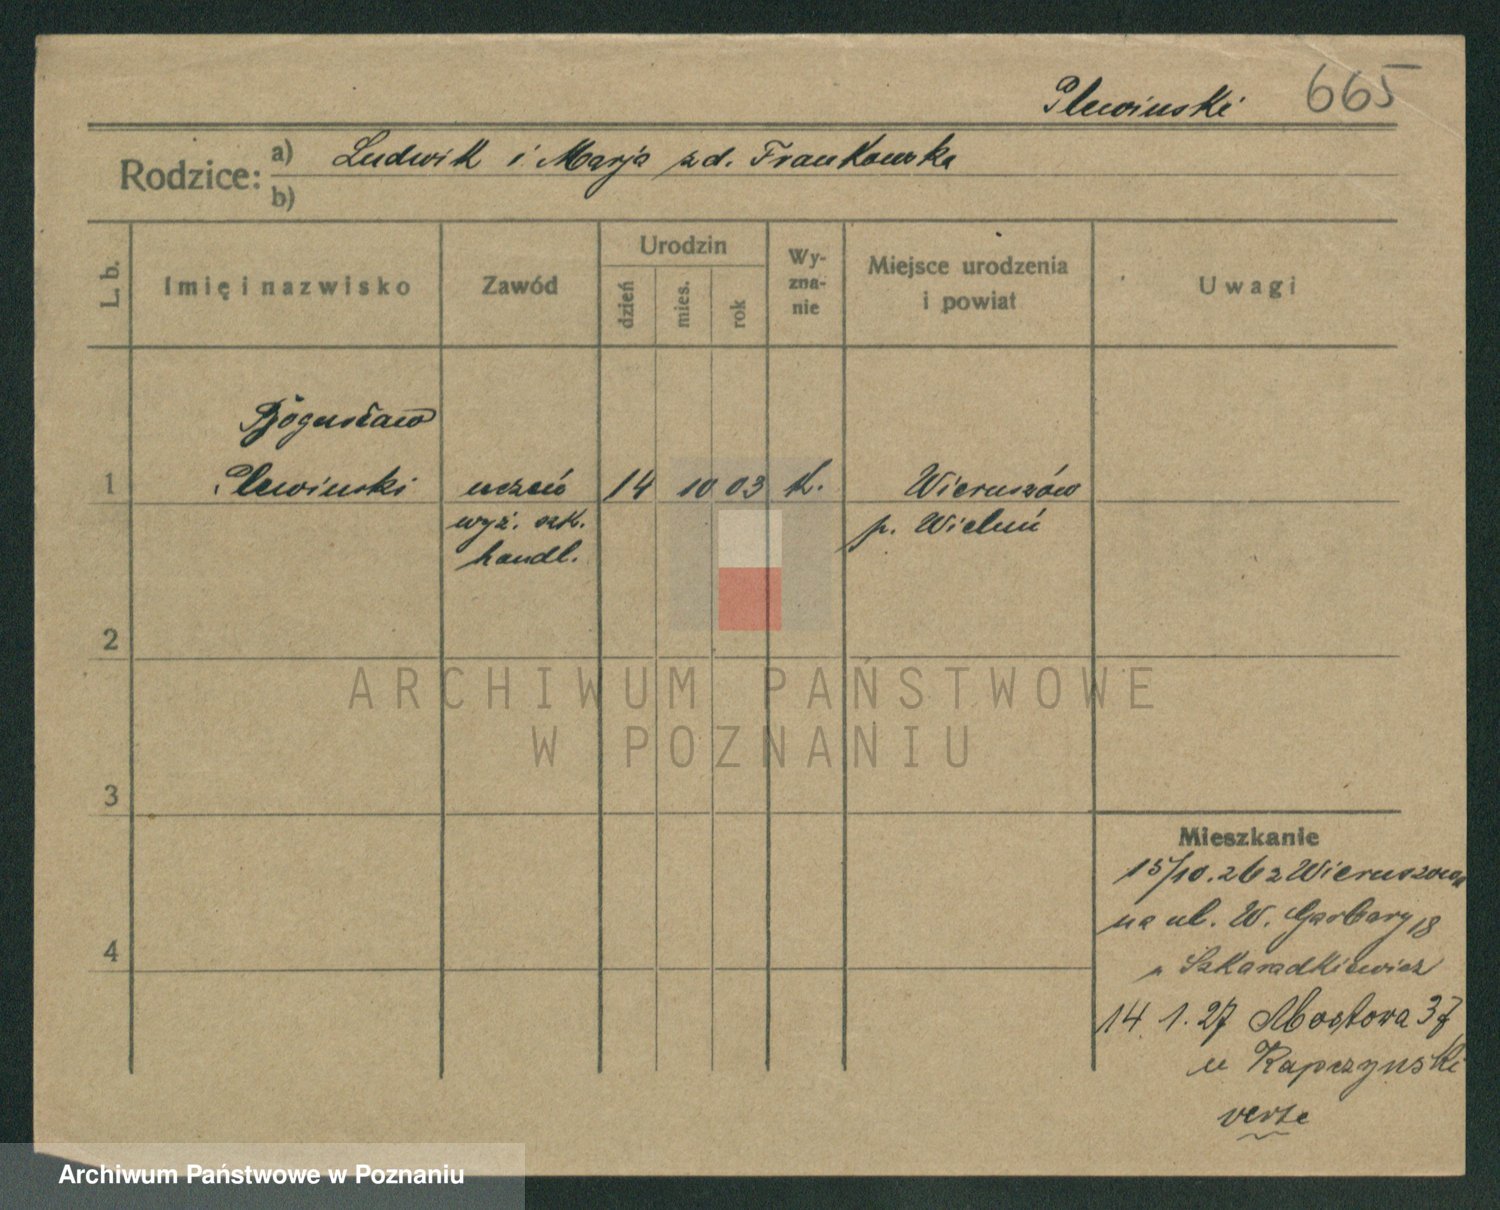 Plewinski 665
Rodzice: a) Ludwik i Marja zd. Frankowska
b)
L. b. Imię i nazwisko Zawód Urodzin dzień mies. rok Wyznanie Miejsce urodzenia i powiat Uwagi
Bogusław
1 Plewinski uczeń 14 10 03 k. Wieruszów
wyż. szk. p. Wieluń
handl.
2
ARCHIWUM PAŃSTWOWE
W POZNANIU
3
Mieszkanie
15/10.26 z Wieruszowa
na ul. W. Garbary 18
Szkaradkiewicz
4
14 1. 27 Mostowa 37
u Kapczynski
verte
Archiwum Państwowe w Poznaniu